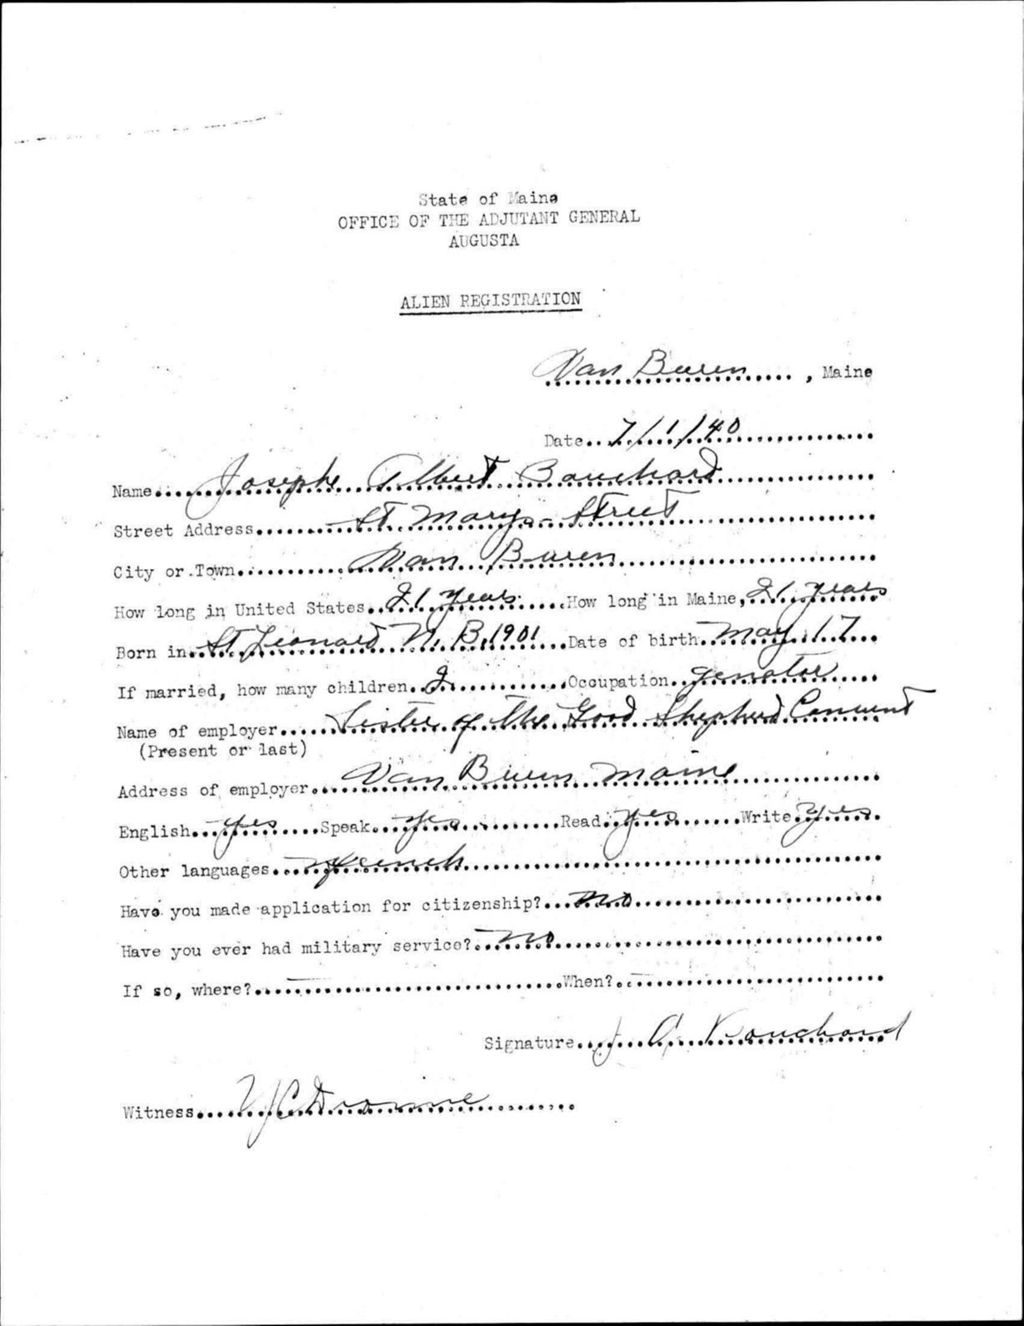 State of Maine
OFFICE OF THE ADJUTANT GENERAL
AUGUSTA
ALIEN REGISTRATION
Van Buren, Maine
Date 7/1/40
Name Joseph Albert Bouchard
Street Address St Marys Street
City or Town Van Buren
How long in United States 21 years How long in Maine, 21 years
Born in St Leonard N. B. 1901 Date of birth May 17
If married, how many children 2 Occupation genator
Name of employer Sister of the Good Shepherd Convent
(Present or last)
Address of employer Van Buren Maine
English yes Speak yes Read yes Write yes
Other languages french
Have you made application for citizenship? no
Have you ever had military service? no
If so, where? — When? —
Signature J A Bouchard
Witness